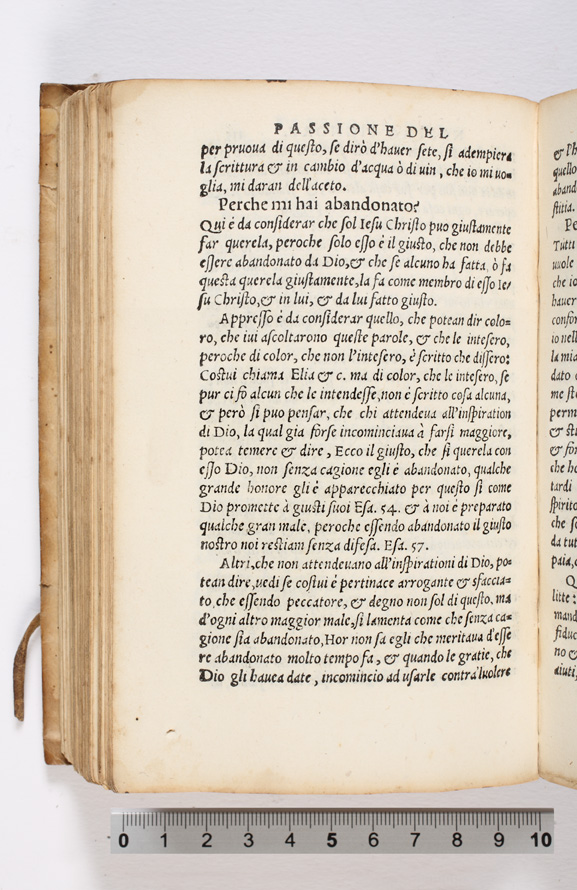 PASSIONE DEL
per pruoua di questo, se dirò d'hauer sete, si adempiera
la scrittura & in cambio d'acqua ò di uin, che io mi uo=
glia, mi daran dell'aceto.
Perche mi hai abandonato?
Qui è da considerar che sol Iesu Christo puo giustamente
far querela, peroche solo esso è il giusto, che non debbe
essere abandonato da Dio,& che se alcuno ha fatta, ò fa
questa querela giustamente,la fa come membro di esso Ie/
su Christo,& in lui, & da lui fatto giusto.
Appresso è da considerar quello, che potean dir colo=
ro, che iui ascoltarono queste parole, & che le intesero,
peroche di color, che non l'intesero, è scritto che dissero:
Costui chiama Elia & c. ma di color, che le intesero, se
pur ci fò alcun che le intendesse,non è scritto cosa alcuna,
& però si puo pensar, che chi attendeua all'inspiration
di Dio, la qual gia forse incominciaua à farsi maggiore,
potea temere & dire, Ecco il giusto, che si querela con
esso Dio, non senza cagione egli è abandonato, qualche
grande honore gli è apparecchiato per questo si come
Dio promette à giusti suoi Esa. 54. & à noi è preparato
qualche gran male, peroche essendo abandonato il giusto
nostro noi restiam senza difesa. Esa. 57.
Altri,che non attendeuano all'inspirationi di Dio, po=
tean dire,uedi se costui è pertinace arrogante & sfaccia=
to,che essendo peccatore, & degno non sol di questo, ma
d'ogni altro maggior male,si lamenta come che senza ca=
gione sia abandonato,Hor non sa egli che meritaua d'esse
re abandonato molto tempo fa, & quando le gratie, che
Dio gli hauea date, incomincio ad usarle contra'luolere
& Ph
quello
aband
stitia.
Pe
Tutti
uuole
che io
hauer
confor
io nell
la mia
dato
me sto
perm
& sti
& for
che ho
tardi
spirito
che se
da tut
paia,
Q
litte :
mand
fiduc
no &
aiuti,
0 1 2 3 4 5 6 7 8 9 10